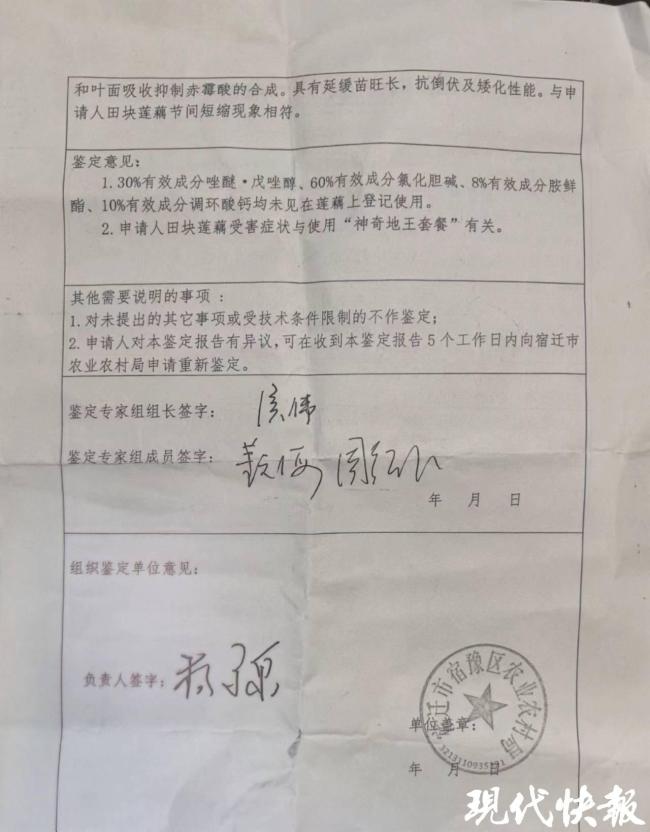 和叶面吸收抑制赤霉酸的合成。具有延缓苗旺长，抗倒伏及矮化性能。与申
请人田块莲藕节间短缩现象相符。
鉴定意见：
1.30%有效成分唑醚·戊唑醇、60%有效成分氯化胆碱、8%有效成分胺鲜
酯、10%有效成分调环酸钙均未见在莲藕上登记使用。
2.申请人田块莲藕受害症状与使用“神奇地王套餐”有关。
其他需要说明的事项：
1.对未提出的其它事项或受技术条件限制的不作鉴定；
2.申请人对本鉴定报告有异议，可在收到本鉴定报告5个工作日内向宿迁市
农业农村局申请重新鉴定。
鉴定专家组组长签字：
鉴定专家组成员签字：
年 月 日
组织鉴定单位意见：
负责人签字：
宿迁市宿豫区农业农村局
单位盖章：
年 月 日
现代快報